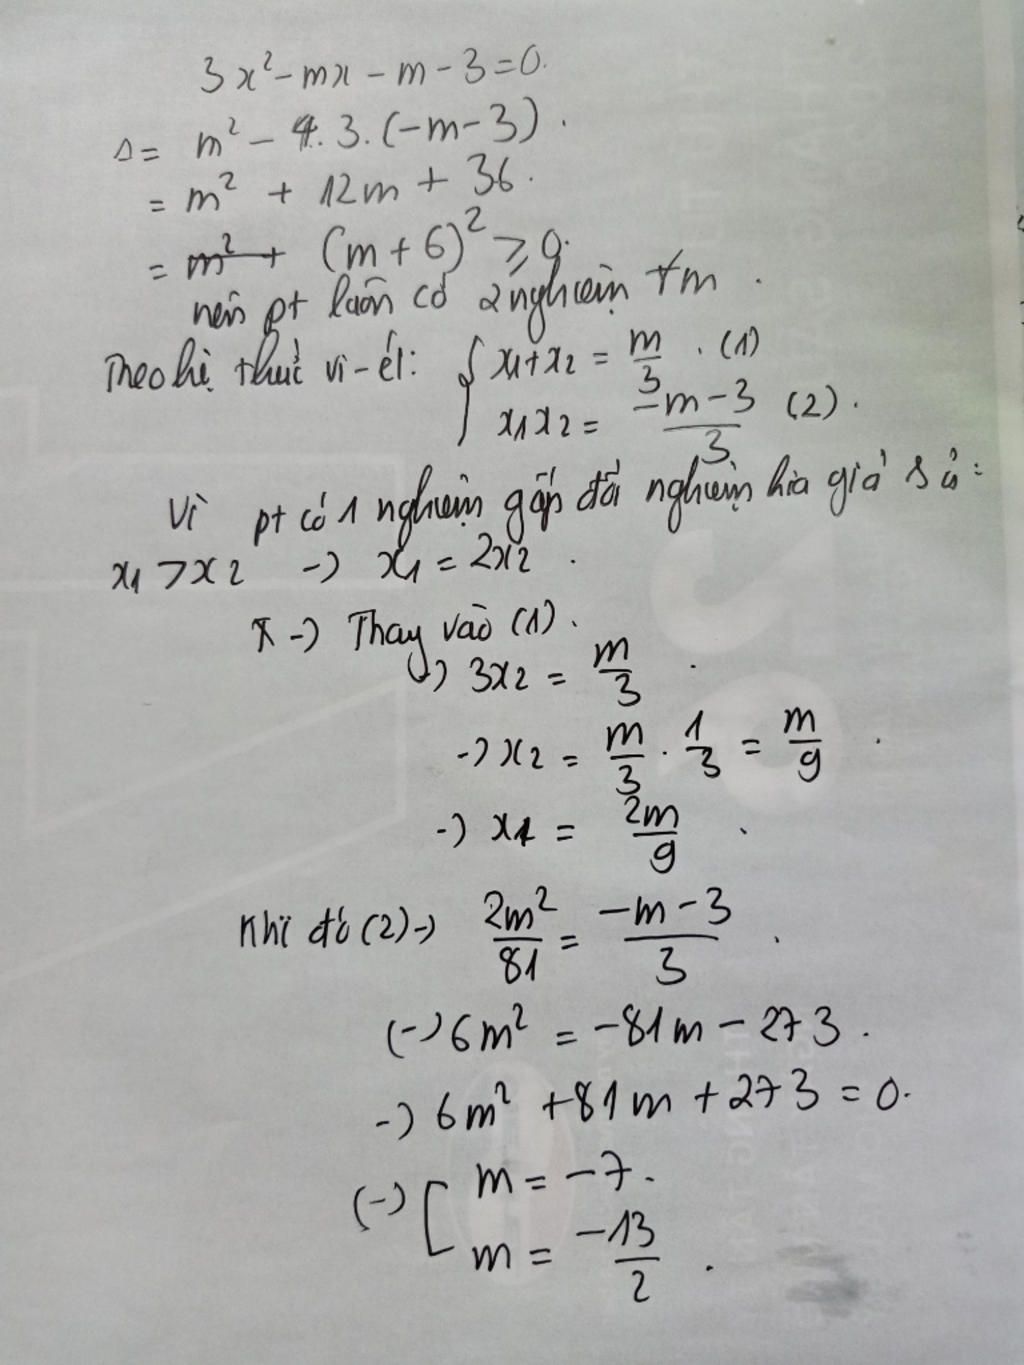 3x² - mx - m - 3 = 0.
Δ = m² - 4.3.(-m-3).
= m² + 12m + 36.
= (m+6)² ≥ 0.
nên pt luôn có 2 nghiệm ∀m.
Theo hệ thức vi-ét: { x1+x2 = m/3 . (1)
x1x2 = (-m-3)/3 (2).
Vì pt có 1 nghiệm gấp đôi nghiệm kia giả sử:
x1 > x2 -> x1 = 2x2.
-> Thay vào (1).
-> 3x2 = m/3.
-> x2 = m/3 . 1/3 = m/9.
-> x1 = 2m/9.
Khi đó (2) -> 2m²/81 = (-m-3)/3.
(-) 6m² = -81m - 273.
-> 6m² + 81m + 273 = 0.
(-) [ m = -7.
m = -13/2.